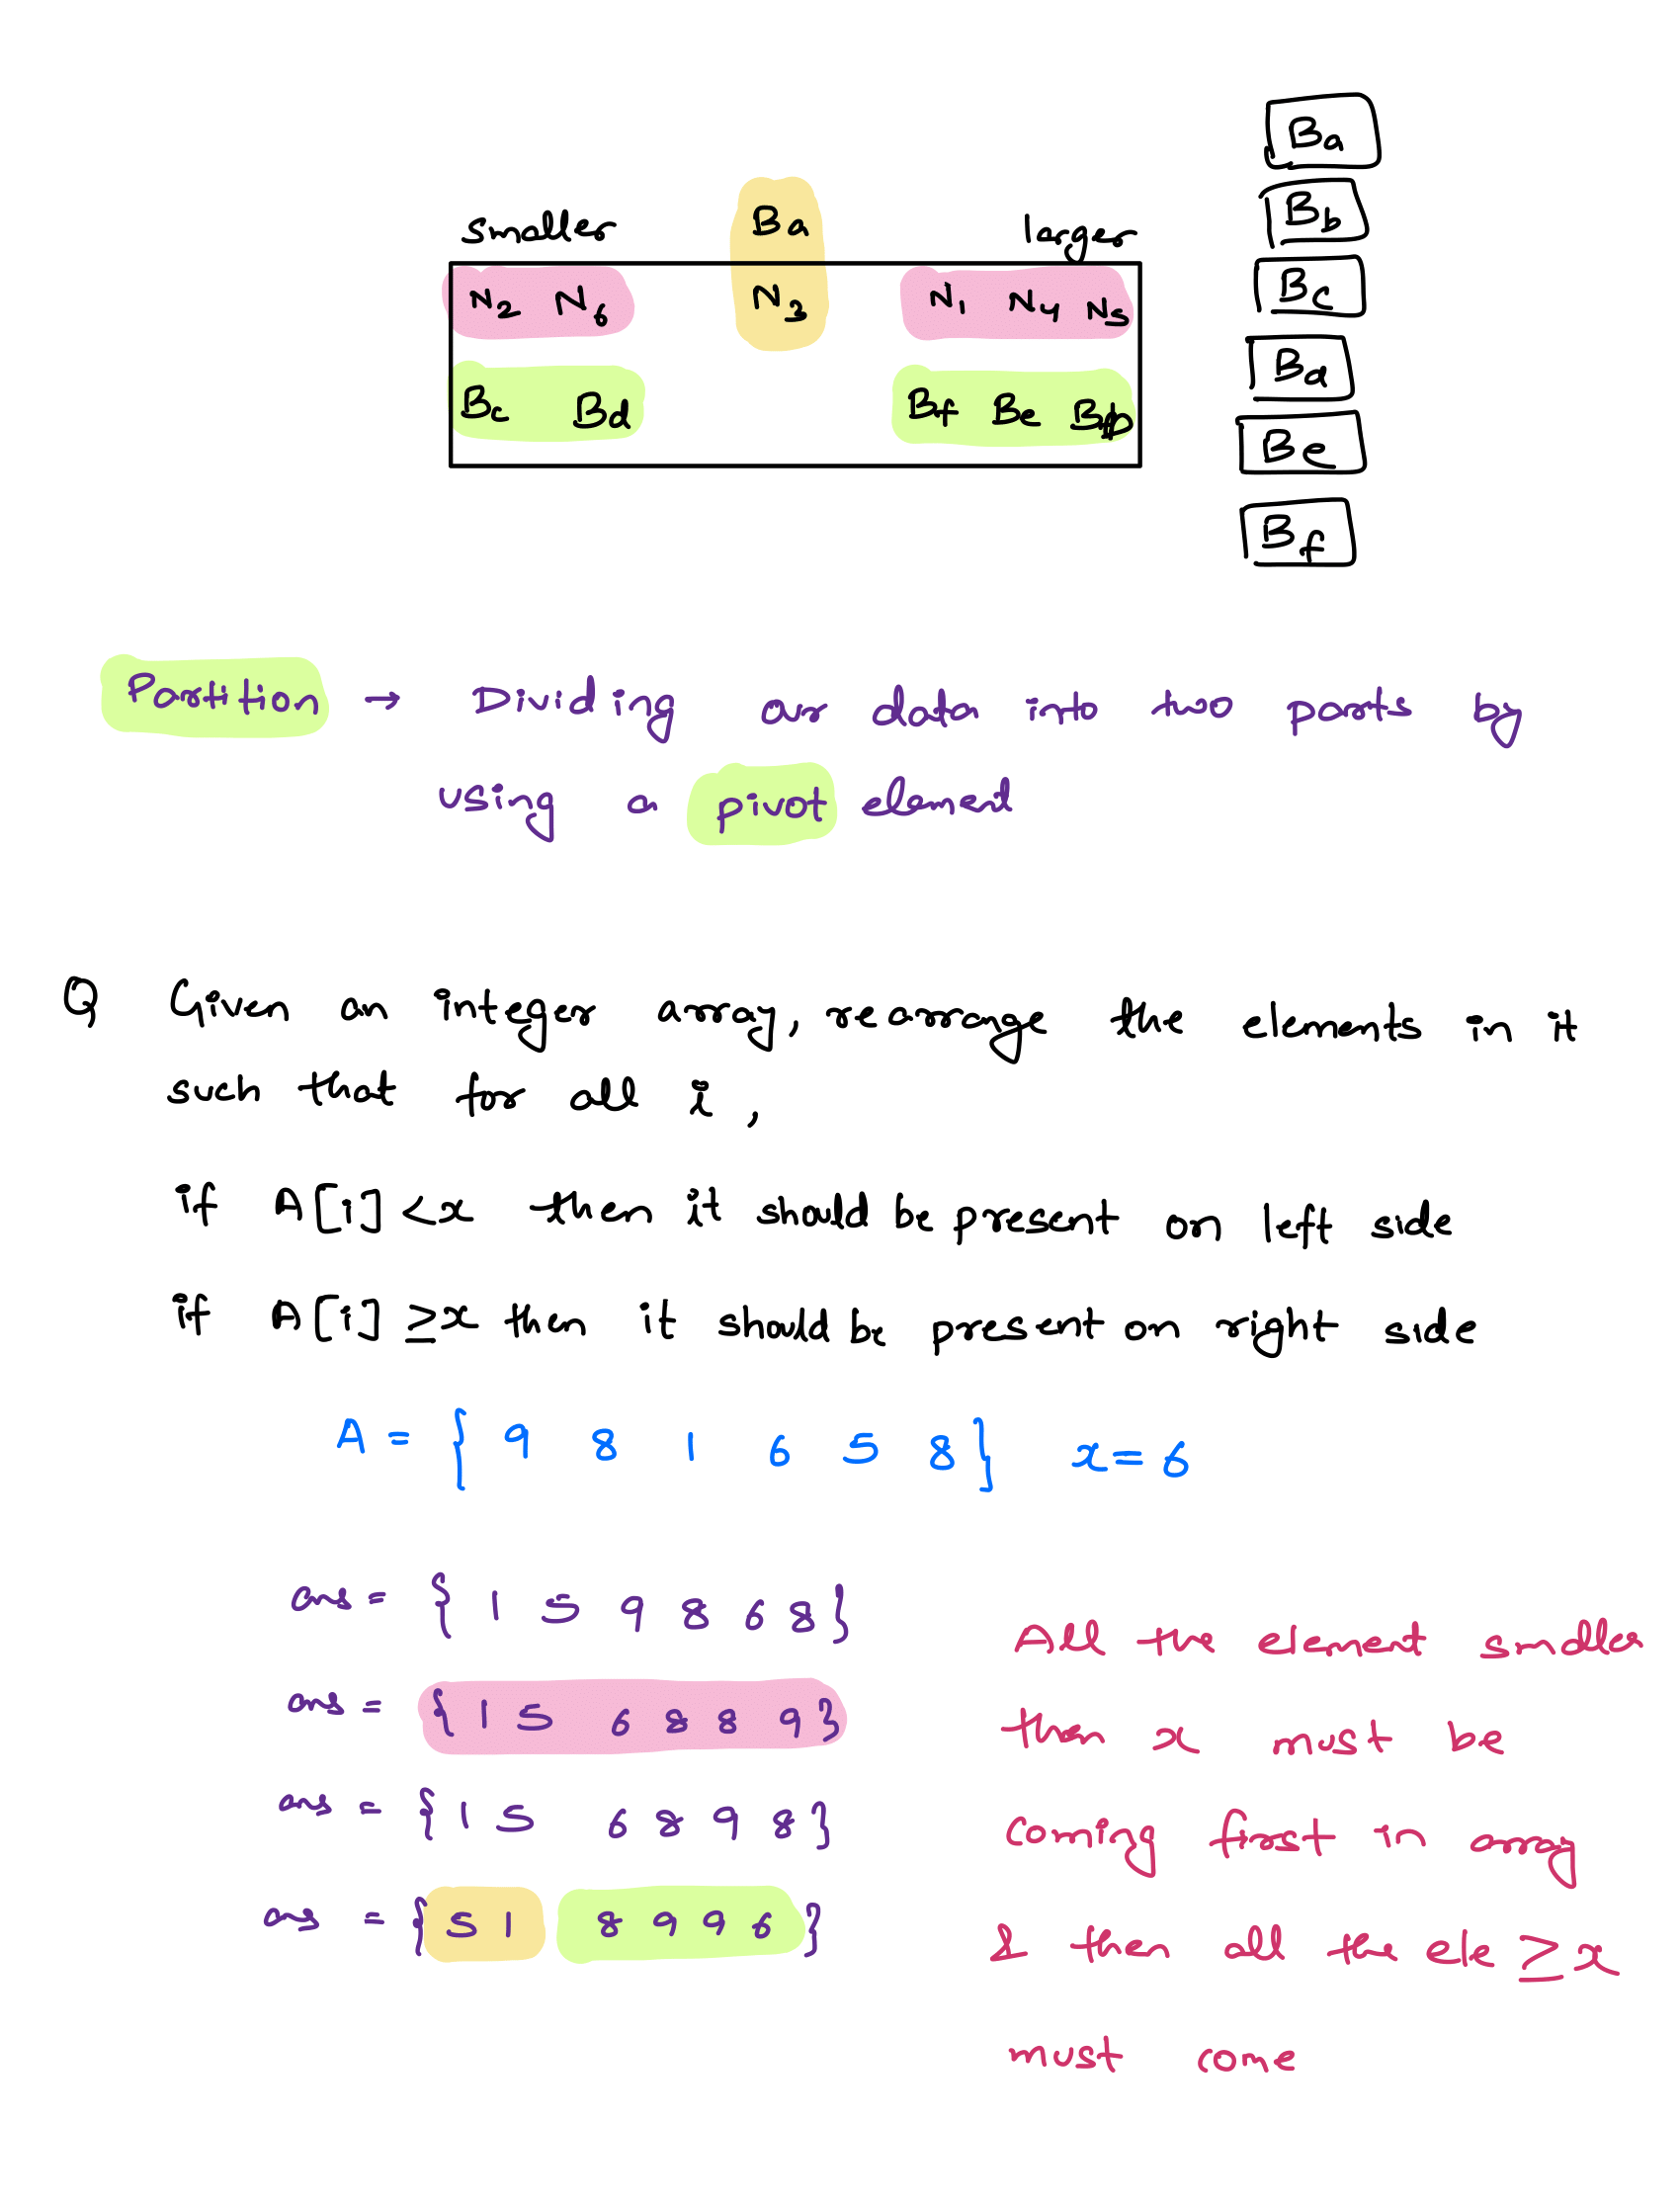 Ba
Bb
smaller Ba larger
N2 N6 N3 N1 N4 N5
Bc
Bc Bd Bf Be
Bd
Be
Bf
Partition → Dividing our data into two parts by
using a pivot element
Q Given an integer array, rearrange the elements in it
such that for all i,
if A[i] <x then it should be present on left side
if A[i] ≥x then it should be present on right side
A = { 9 8 1 6 5 8} x=6
ans = { 1 5 9 8 6 8}
ans = { 1 5 6 8 8 9}
ans = { 1 5 6 8 9 8}
ans = { 5 1 8 9 9 6 }
All the element smaller
than x must be
coming first in array
& then all the ele ≥x
must come